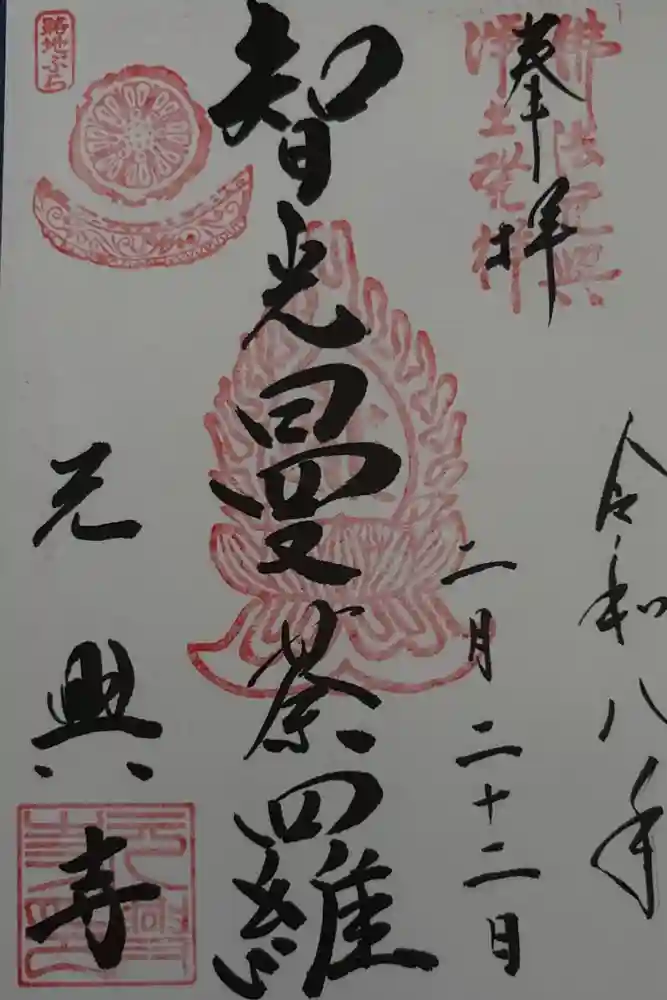 奉拝
佛法元興
浄土発祥
令和八年
二月二十二日
智光曼荼羅
元興寺
路地ぶら